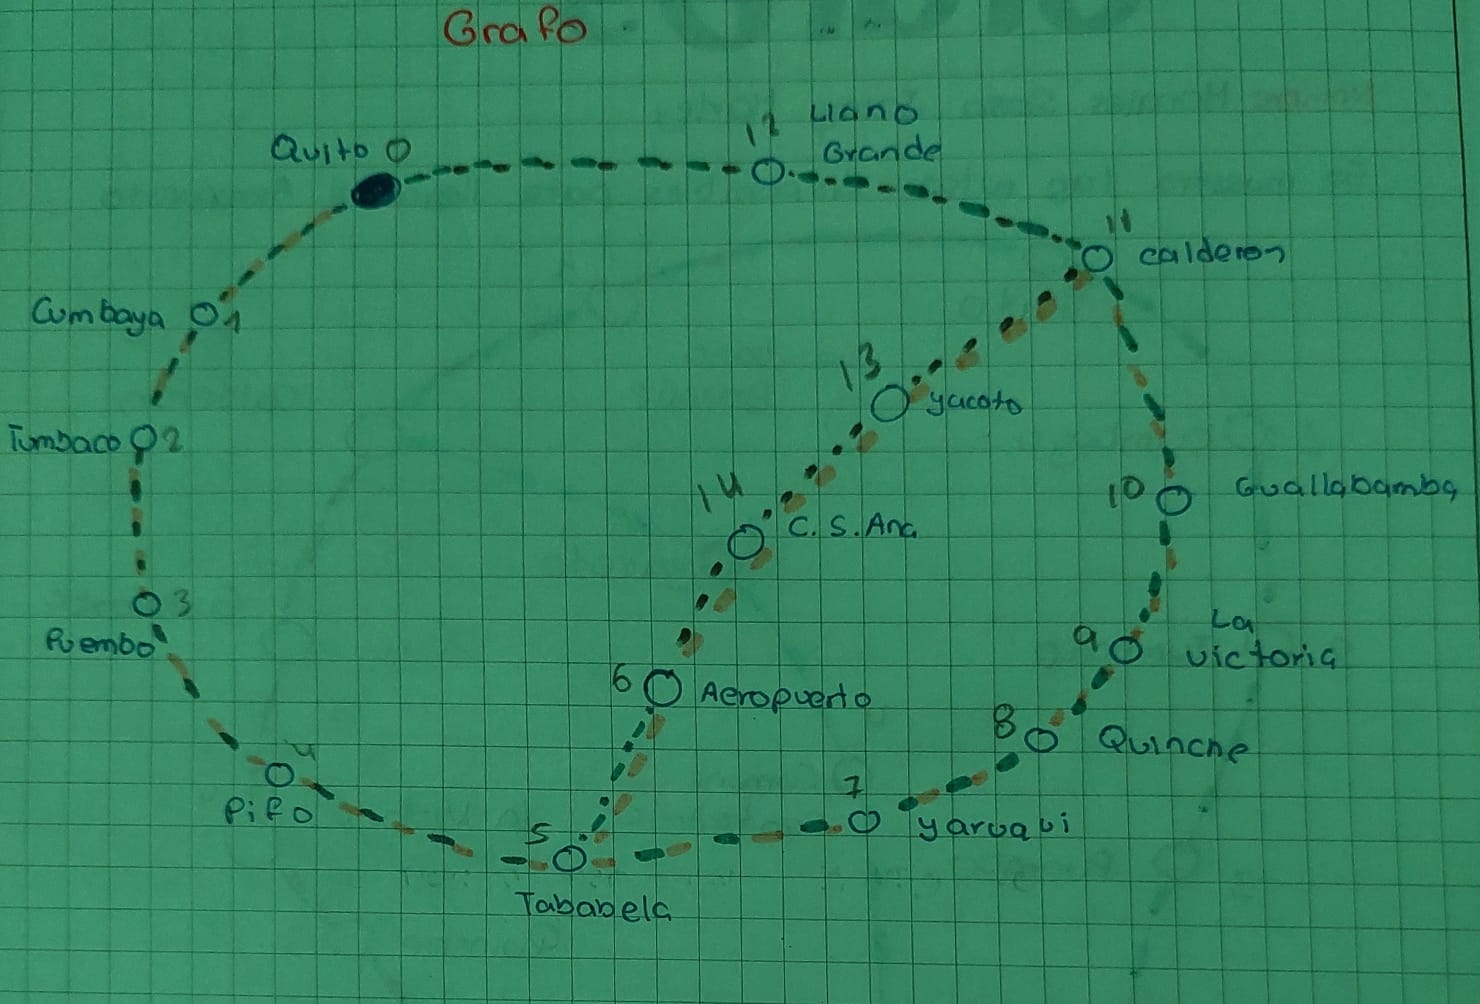 Grafo
Quito 0
12 Llano
Grande
11
calderon
Cumbaya 1
13
yacoto
Tumbaco 2
14
C. S. Ana
10 Guallabamba
3
Puembo
9 La
victoria
6 Aeropuerto
8 Quinche
4
Pifo
7
yaruqui
5
Tababela